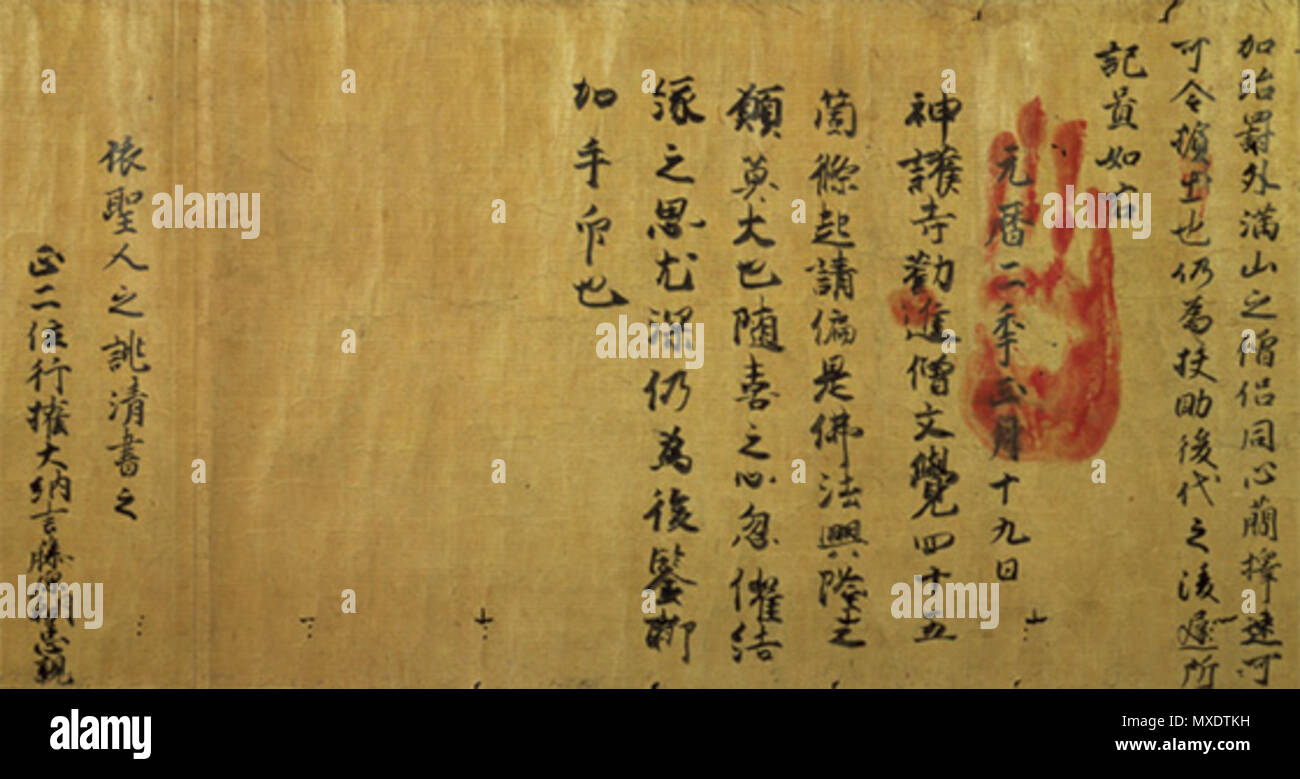 加治罸外満山之僧侶同心蕳擇速可
可令擯出也仍為扶助後代之凌遅所
記貟如右
元暦二季正月十九日
神護寺勸進僧文覺四十五
箇條起請偏是佛法興隆之
願莫大也随喜之心忽催結
縁之思尤深仍為後鑒聊
加手印也
依聖人之誂清書之
正二位行權大納言藤原朝臣忠親
alamy
Image ID: MXDTKH
www.alamy.com